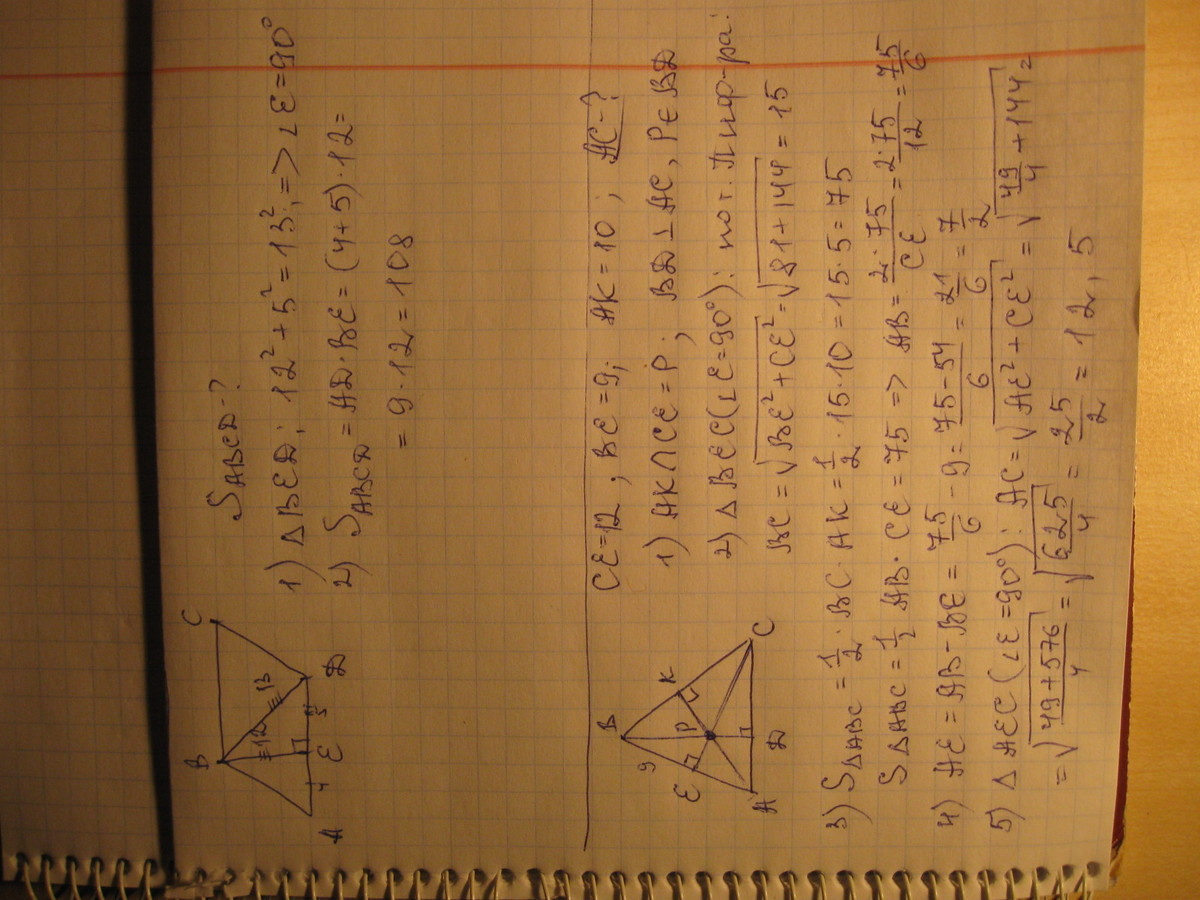 S_ABCD-?
B
C
12
13
4
5
A
E
D
1) ΔBED: 12² + 5² = 13², => ∠E = 90°
2) S_ABCD = AD·BE = (4+5)·12 =
= 9·12 = 108
CE=12, BE=9; AK=10; AC-?
B
9
E
P
K
A
D
C
1) AK∩CE=P; BD⊥AC, P∈BD
2) ΔBEC (∠E=90°): по т. Пифагора:
BC = √(BE²+CE²) = √(81+144) = 15
3) S_ΔABC = 1/2·BC·AK = 1/2·15·10 = 15·5 = 75
S_ΔABC = 1/2 AB·CE = 75 => AB = 2·75/CE = 2·75/12 = 75/6
4) AE = AB-BE = 75/6 - 9 = (75-54)/6 = 21/6 = 7/2
5) ΔAEC (∠E=90°): AC = √(AE²+CE²) = √(49/4+144) =
= √((49+576)/4) = √(625/4) = 25/2 = 12,5